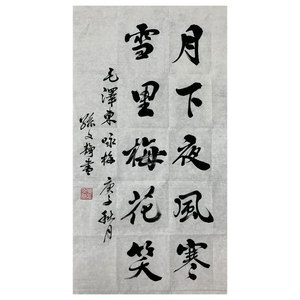 月下夜風寒
雪里梅花笑
毛澤東咏梅 庚子秋月
孫文静書